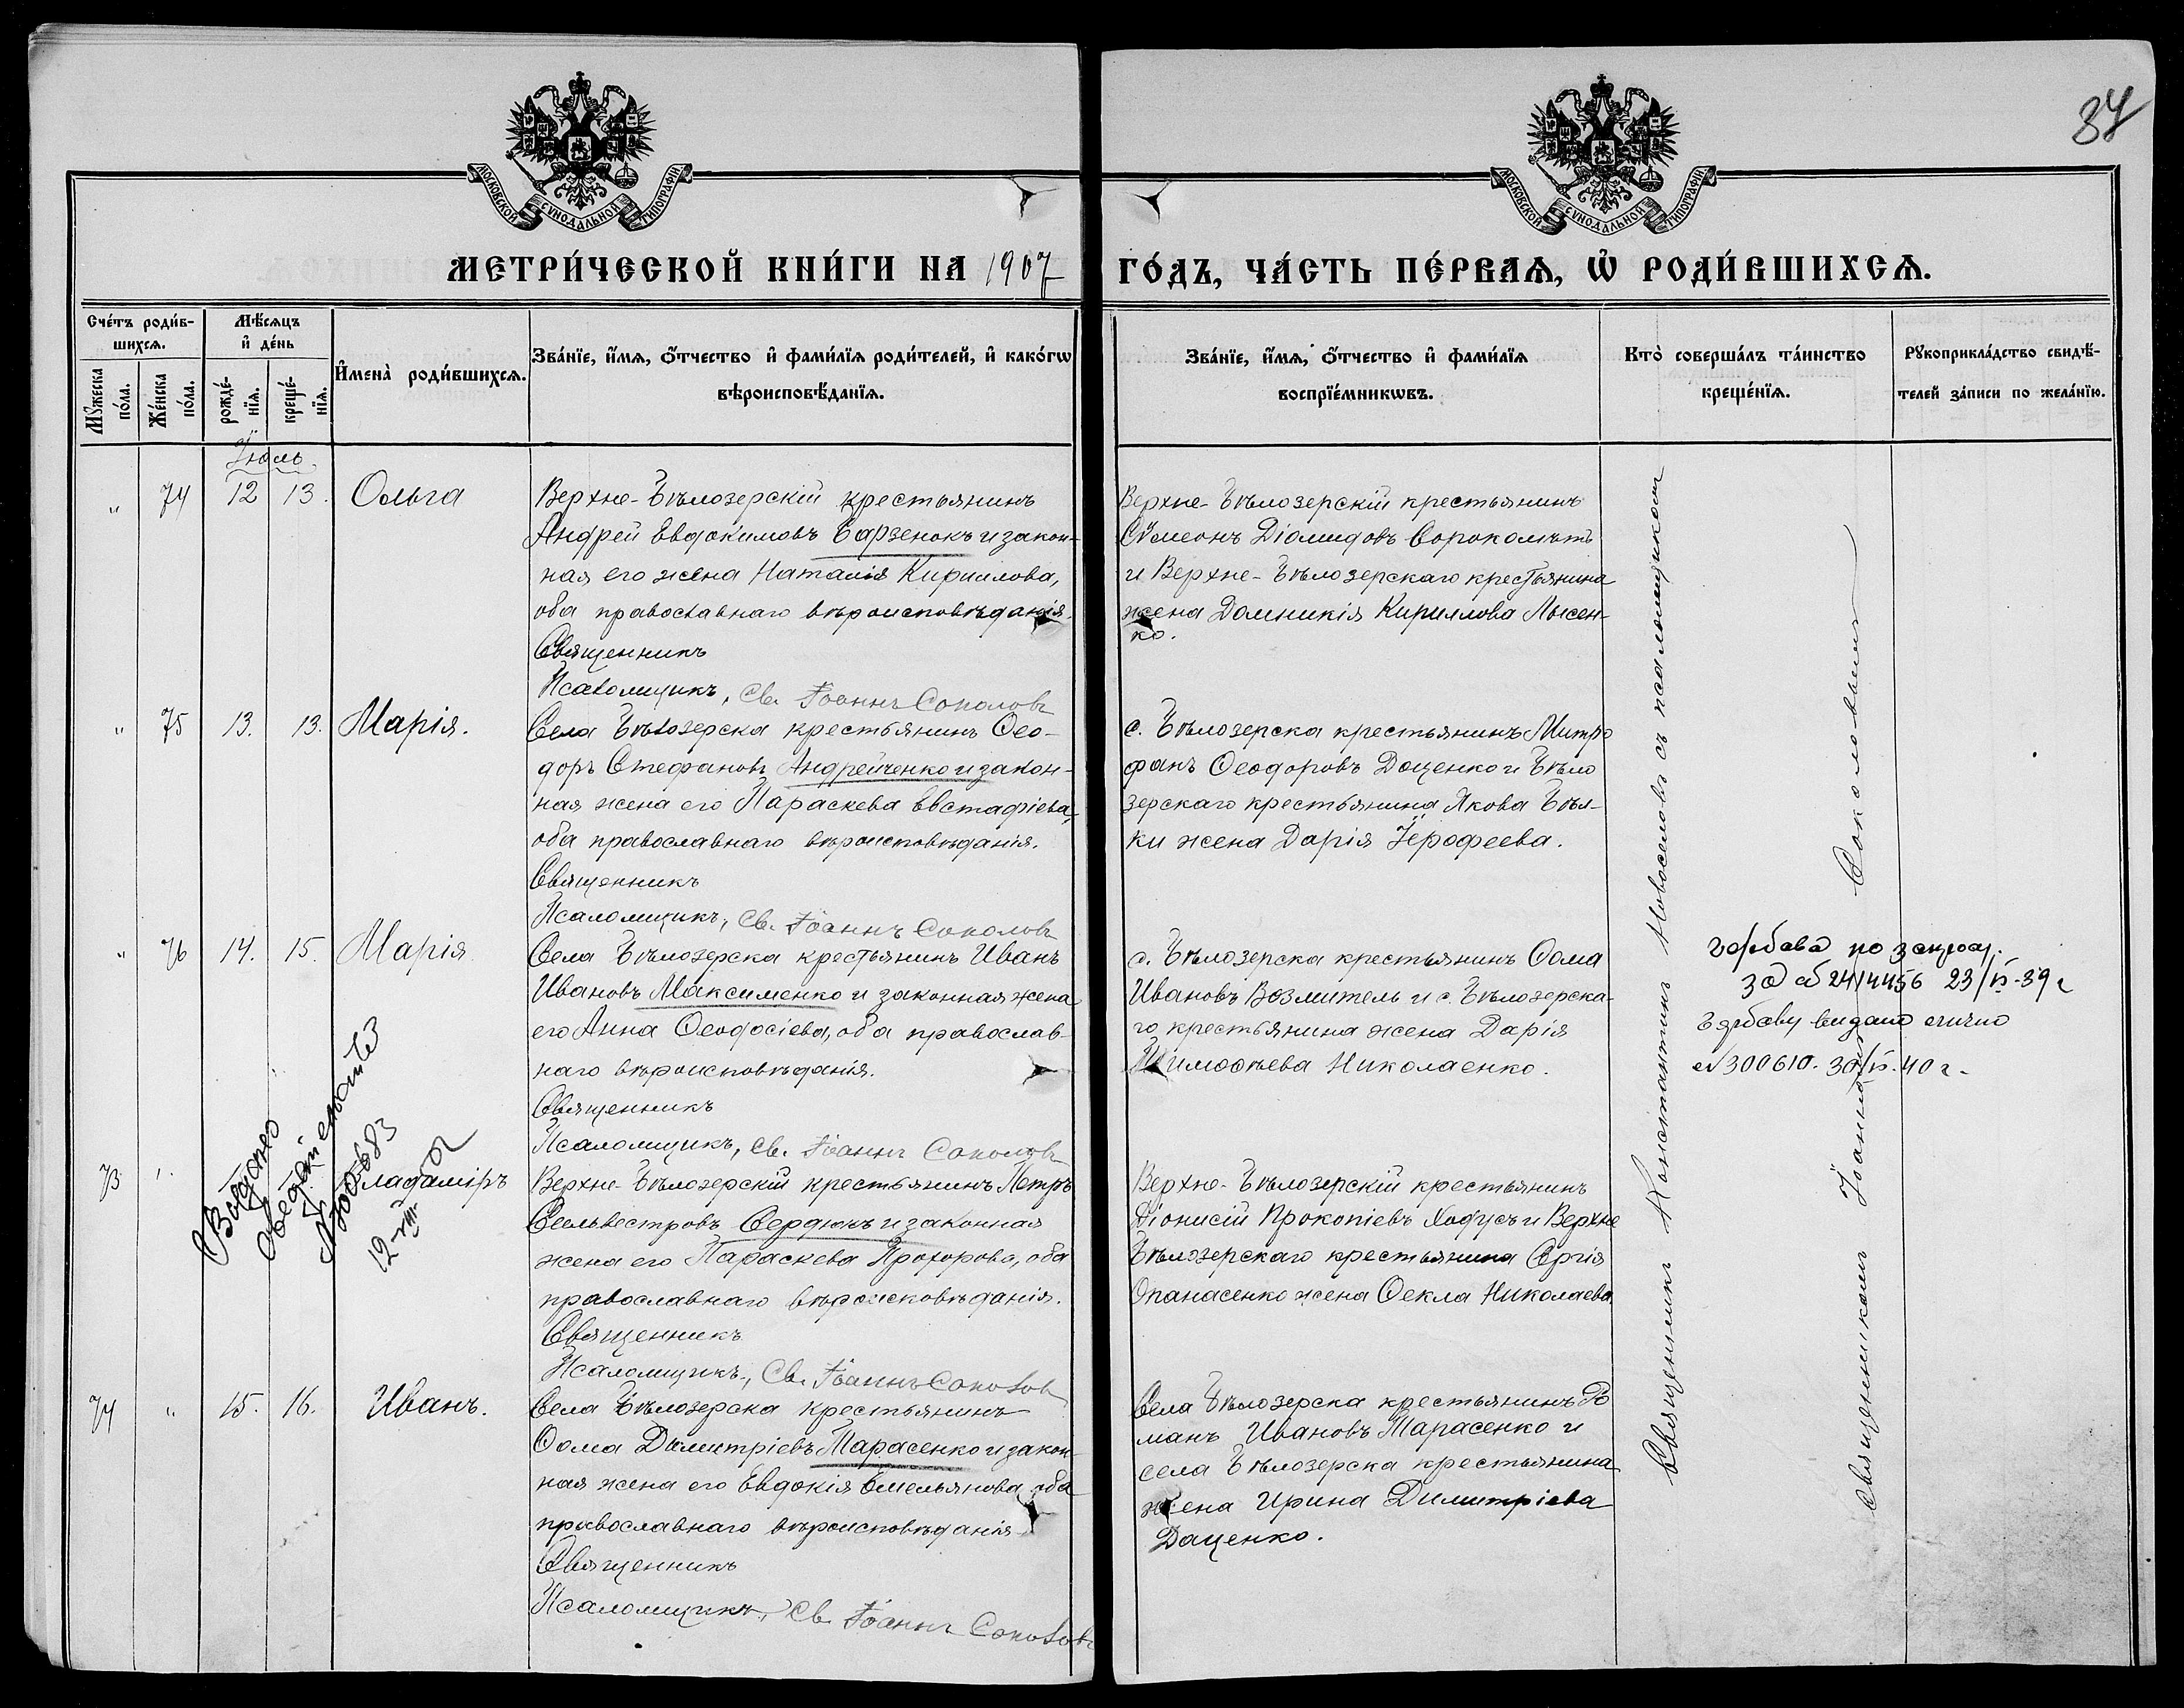 87
МОСКОВСКОЙ СѴНОДАЛЬНОЙ ТИПОГРАФІИ
МОСКОВСКОЙ СѴНОДАЛЬНОЙ ТИПОГРАФІИ
МЕТРИ́ЧЕСКОЙ КНИ́ГИ НА 1907 ГО́ДЪ, ЧА́СТЬ ПЕ́РВАѦ, Ѡ҆ РОДИ́ВШИХСѦ.
Сче́тъ роди́в-
шихсѧ.
Мꙋ́жеска
по́ла.
Же́нска
по́ла.
Мѣ́сѧцъ
и҆ де́нь
рожде́-
нїѧ.
креще́-
нїѧ.
И҆мена̀ роди́вшихсѧ.
Зва́нїе, и҆́мѧ, ѻ҆́тчество и҆ фами́лїѧ роди́телей, и҆ како́гѡ
вѣроисповѣ́данїѧ.
Зва́нїе, и҆́мѧ, ѻ҆́тчество и҆ фами́лїѧ
воспрїе́мникѡвъ.
Кто̀ соверша́лъ та́инство
креще́нїѧ.
Рꙋкоприкла́дство свидѣ́-
телей за́писи по жела́нїю.
Іюль.
" 74 12 13. Ольга
Верхне-Бѣлозерскій крестьянинъ
Андрей Евдокимовъ Барзенокъ и закон-
ная его жена Наталія Кириллова,
оба православнаго вѣроисповѣданія.
Священникъ
Псаломщикъ, Св. Іоаннъ Соколовъ
Верхне-Бѣлозерскій крестьянинъ
Сѵмеонъ Діомидовъ Сорокомѣтъ
и Верхне-Бѣлозерскаго крестьянина
жена Домникія Кириллова Лысен-
ко.
" 75 13. 13. Марія.
Села Бѣлозерска крестьянинъ Ѳео-
доръ Стефановъ Андрейченко и закон-
ная жена его Параскева Евстафіева,
оба православнаго вѣроисповѣданія.
Священникъ
Псаломщикъ, Св. Іоаннъ Соколовъ
с. Бѣлозерска крестьянинъ Митро
фанъ Ѳеодоровъ Доценко и Бѣло
зерскаго крестьянина Якова Бѣл-
ки жена Дарія Іерофеева.
" 76 14. 15. Марія
Села Бѣлозерска крестьянинъ Иванъ
Ивановъ Максименко и законная жена
его Анна Ѳеодосіева, оба православ-
наго вѣроисповѣданія.
Священникъ
Псаломщикъ, Св. Іоаннъ Соколовъ
с. Бѣлозерска крестьянинъ Ѳома
Ивановъ Возмитель и с. Бѣлозерска-
го крестьянина жена Дарія
Тимоѳеева Николаенко.
по
2414456 23/VI-39 г
видано
№ 300610. 30/VI-40 г.
73 " Владиміръ
Выдано
№ 700683
12-VIII
Верхне-Бѣлозерскій крестьянинъ Петръ
Сельвестровъ Сердюкъ и законная
жена его Параскева Прохорова, оба
православнаго вѣроисповѣданія.
Священникъ
Псаломщикъ, Св. Іоаннъ Соколовъ
Верхне-Бѣлозерскій крестьянинъ
Діонисій Прокопіевъ Ходусъ и Верхне
Бѣлозерскаго крестьянина Сергія
Опанасенко жена Ѳекла Николаева
74 " 15. 16. Иванъ.
Села Бѣлозерска крестьянинъ
Ѳома Димитріевъ Тарасенко и закон-
ная жена его Евдокія Емельянова оба
православнаго вѣроисповѣданія
Священникъ
Псаломщикъ, Св. Іоаннъ Соколовъ
Села Бѣлозерска крестьянинъ Ро
манъ Ивановъ Тарасенко и
села Бѣлозерска крестьянина
жена Ирина Димитріева
Даценко.
Священникъ Константинъ Новоселовъ съ псаломщикомъ
священникомъ Іоанномъ Соколовымъ